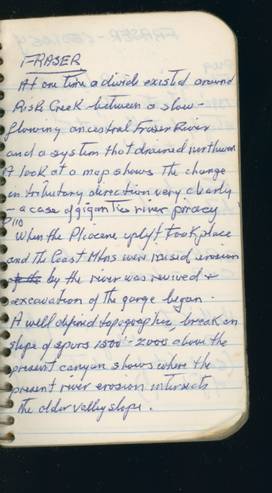 FRASER
At one time a divide existed around
Risk Creek between a slow-
flowing ancestral Fraser River
and a system that drained northward
A look at a map shows the change
in tributary direction very clearly
- a case of gigantic river piracy
Plio
When the Pliocene uplift took place
and the Coast Mtns were raised erosion
by the river was revived +
excavation of the gorge began.
A well defined topographic break on
slope of spurs 1500' - 2000 above the
present canyon shows where the
present river erosion intersects
the older valley slope.